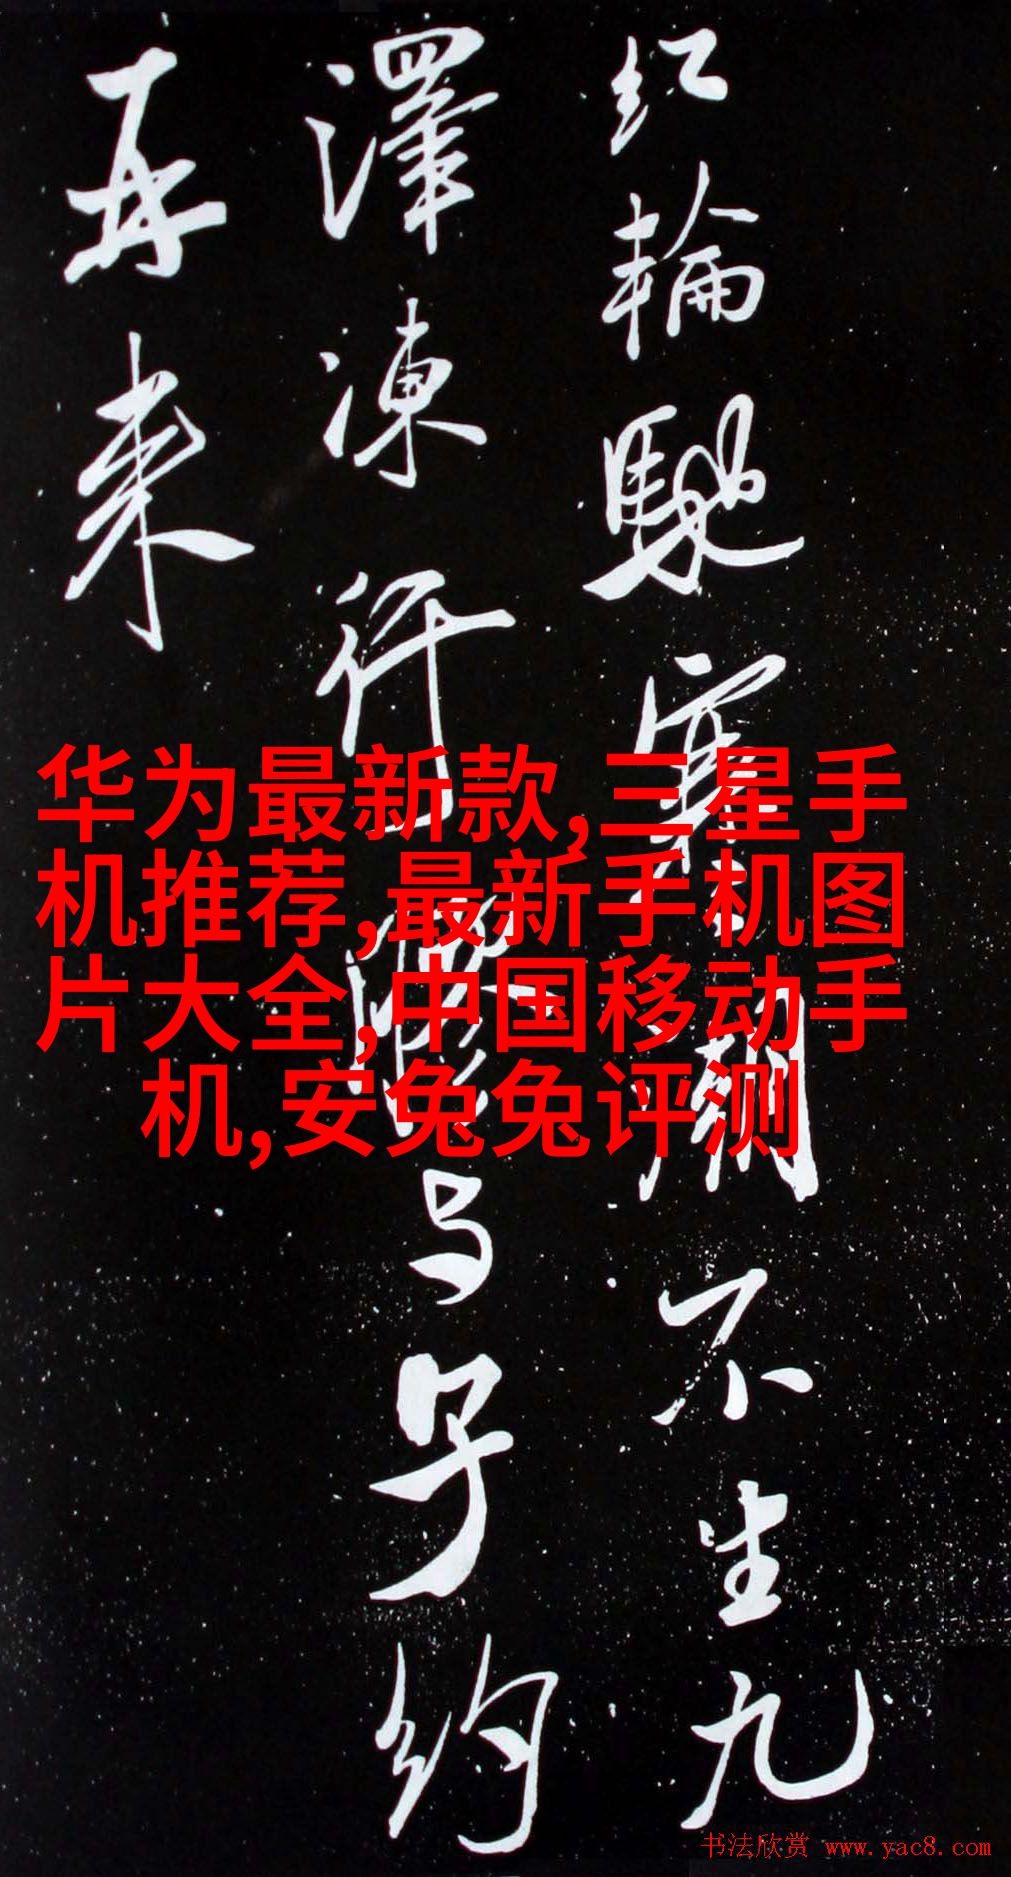 红轮驰寒潮不生九
澤凍行與子约
再来
华为最新款,三星手
机推荐,最新手机图
片大全,中国移动手
机,安兔兔评测
书法欣赏 www.yac8.com